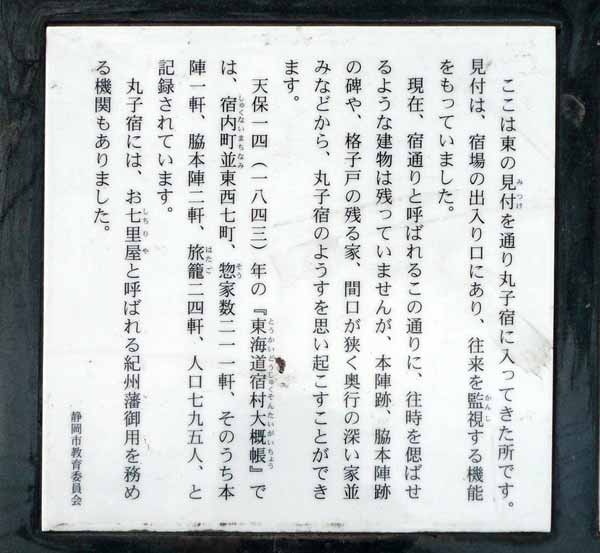 ここは東の見付を通り丸子宿に入ってきた所です。
見付は、宿場の出入り口にあり、往来を監視する機能
をもっていました。
現在、宿通りと呼ばれるこの通りに、往時を偲ばせ
るような建物は残っていませんが、本陣跡、脇本陣跡
の碑や、格子戸の残る家、間口が狭く奥行の深い家並
みなどから、丸子宿のようすを思い起こすことができ
ます。
天保一四（一八四三）年の『東海道宿村大概帳』で
は、宿内町並東西七町、惣家数二一一軒、そのうち本
陣一軒、脇本陣二軒、旅籠二四軒、人口七九五人、と
記録されています。
丸子宿には、お七里屋と呼ばれる紀州藩御用を務め
る機関もありました。
静岡市教育委員会